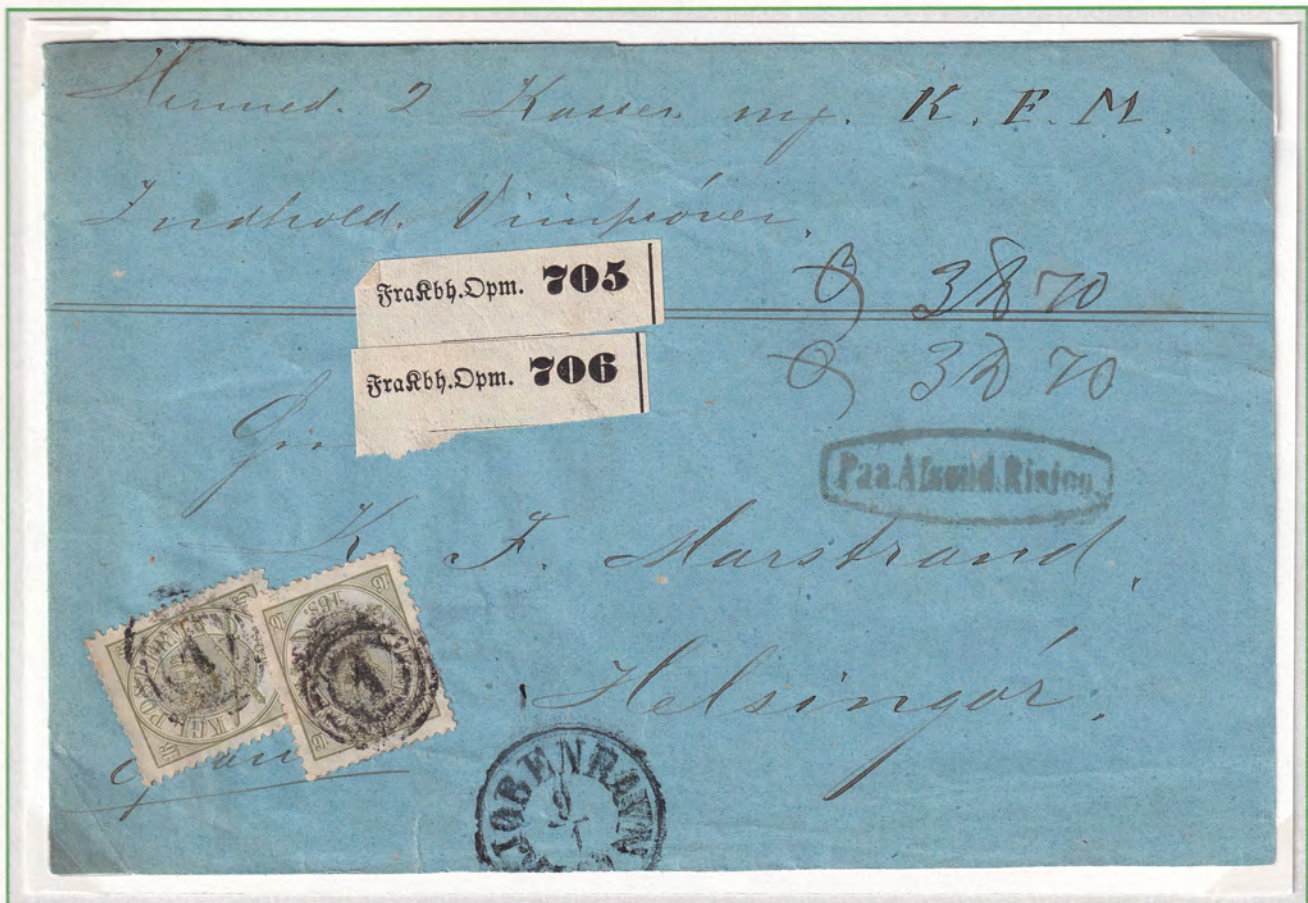 Hermed. 2 Kasser mf. K. F. M.
Indhold. Viinprøver.
FraKbh.Opm. 705
3 ℔ 70
FraKbh.Opm. 706
3 ℔ 70
Paa Afsend. Risico
K. F. Marstrand.
Helsingør.
16 S.
KGL. PO
KJØBENHAVN
9
1
1
1